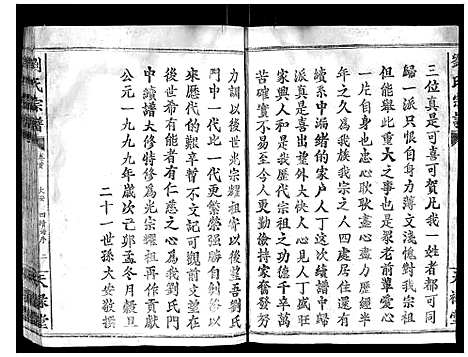 劉氏宗譜
三位真是可喜可賀此我一姓者都可同
歸一派只恨自身力薄文淺愧對我宗祖
但是此重大之事也是眾老前輩委恩
一片自身也忠心耿耿盡心盡力歷經半
年之久為我族我宗之人四處居住
續系中漏緒的家戶人丁這次續譜大業
告成喜出望外大快人心人丁威旺
萬事興和是我歷代宗祖之功德千辛萬
苦確實
力訓以后世光宗耀祖前後豐吾劉氏
門中一代比一代更繁榮強勝自創修以
來歷代的艱辛暫不文記可觀前文望在
後世希后者能有仁慈之心為我劉氏門
中續譜大修特修為光宗耀祖再作貢獻
公元一九九九年歲次己卯孟冬月穀旦
二十一世孫大安敬撰
劉氏宗譜
卷首
大安 四修譜序 二
天祿堂